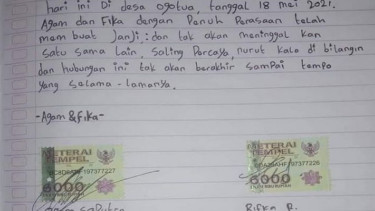 hari ini Di desa ogotua, tanggal 18 mei 2021.
Agam dan Fika dengan Penuh Perasaan telah
mem buat Janji : dan tak akan meninggal kan
satu sama lain. saling Percaya, nurut kalo di bilangin
dan hubungan ini tak akan berakhir sampai tempo
yang selama - lamanya.
-Agam & fika-
METERAI TEMPEL METERAI TEMPEL
197377227 197377226
6000 6000
Rifka R.